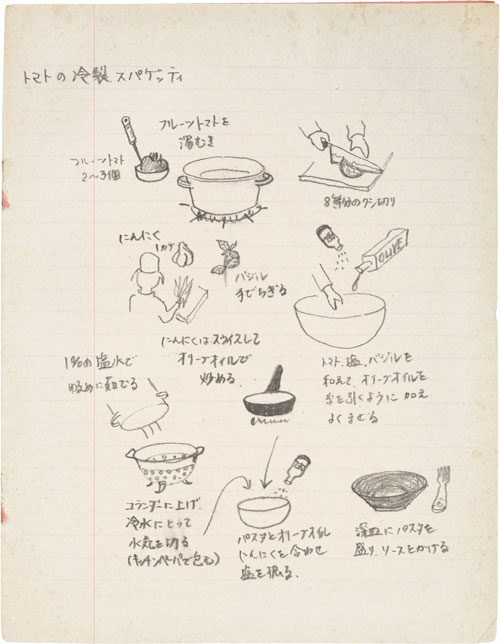 トマトの冷製スパゲッティ
フルーツトマトを
湯むき
フルーツトマト
2〜3個
8等分のクシ切り
にんにく
1カケ
バジル
手でちぎる
OLIVE
にんにくはスライスして
オリーブオイルで
炒める
トマト、塩、バジルを
和えて、オリーブオイルを
糸を引くように加え
よくまぜる
1%の塩水で
を茹でる
コランダーに上げ、
冷水にとって
水気を切る
(キッチンペーパーで包む)
パスタとオリーブオイル
にんにくを合わせ
塩を振る、
深皿にパスタを
盛り、ソースをかける